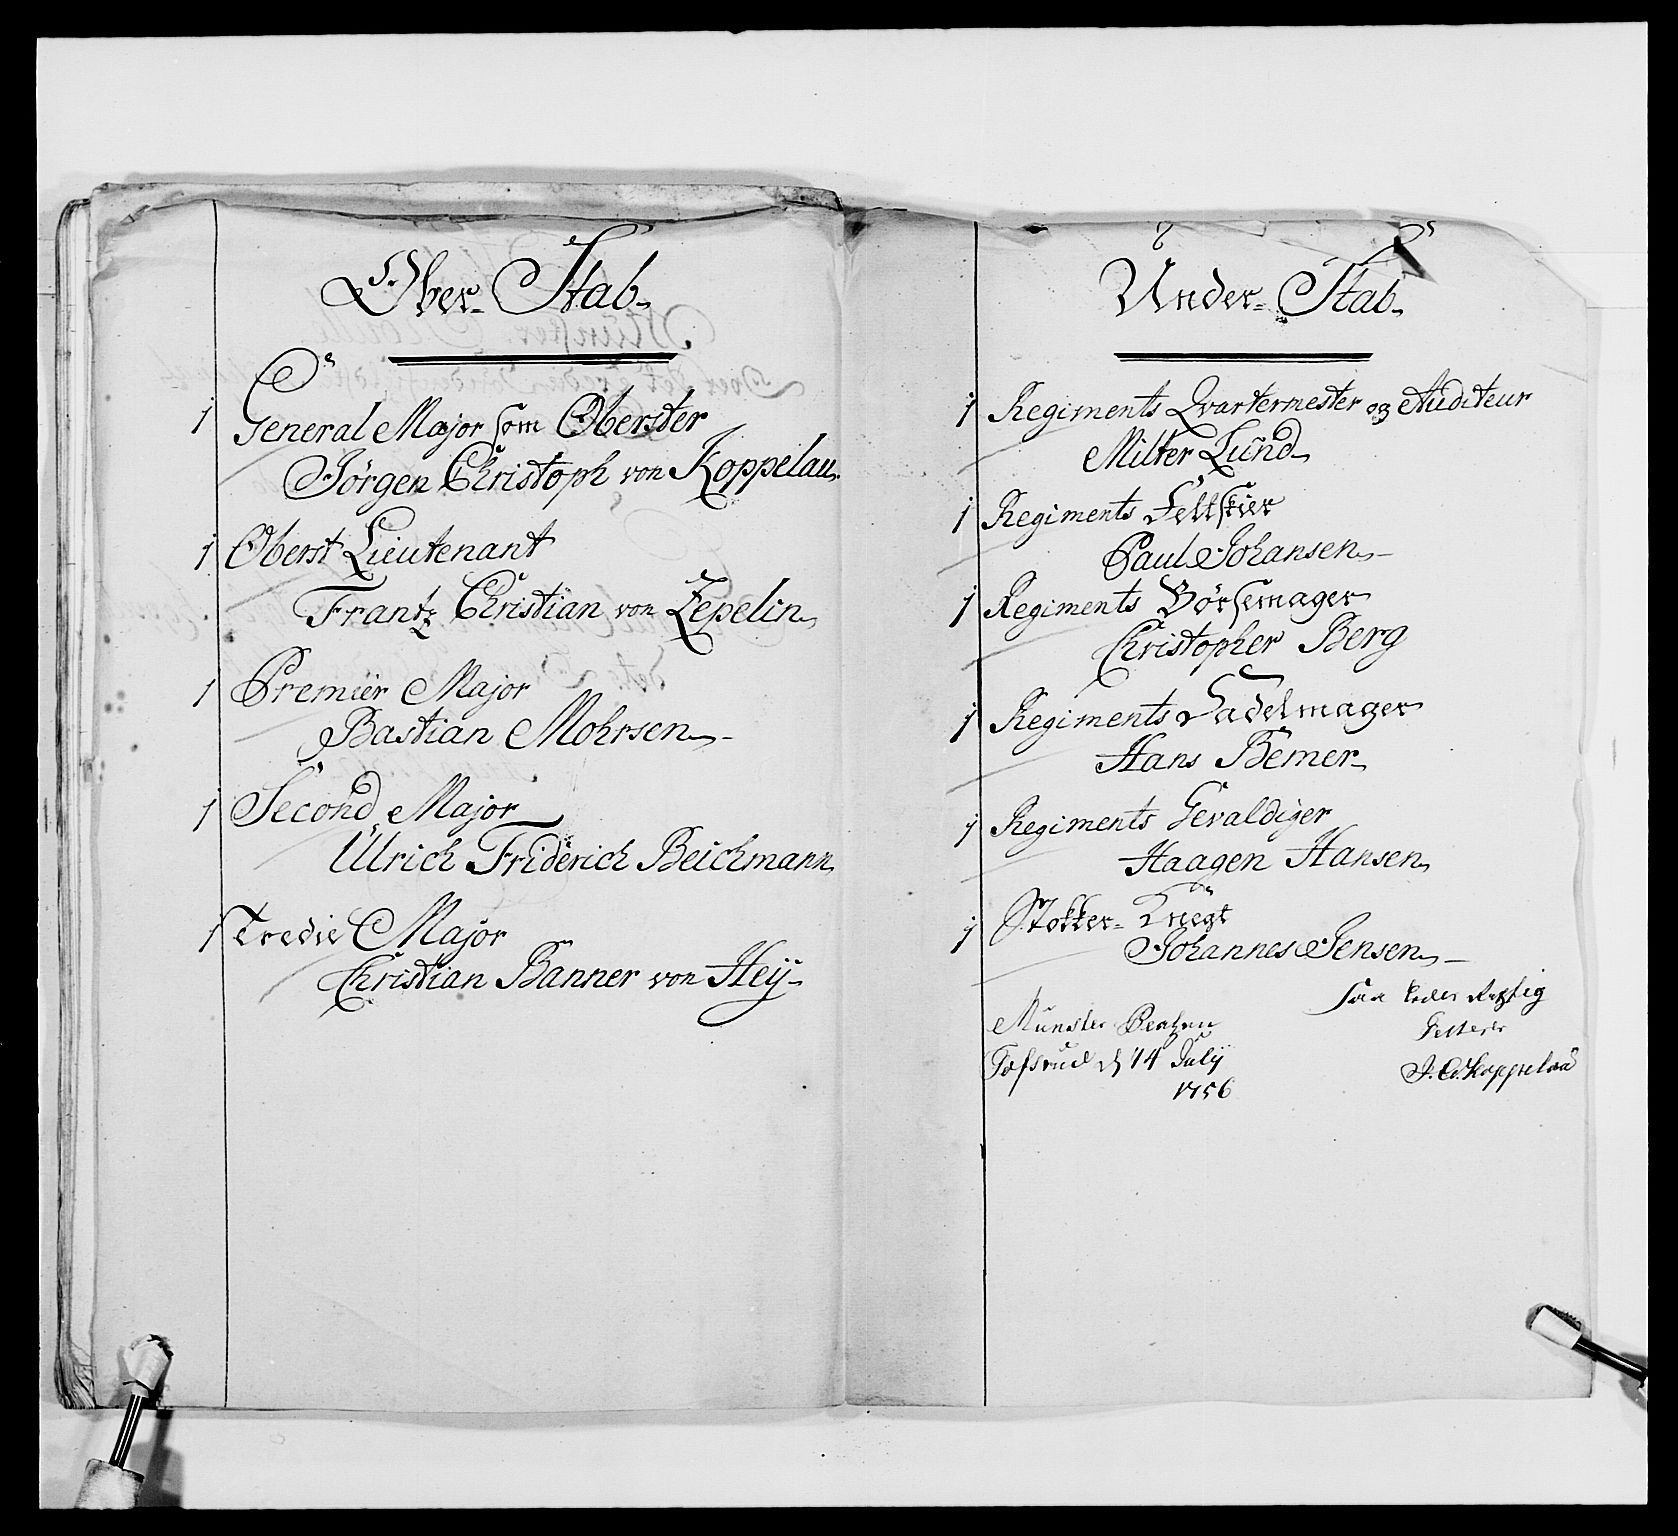 Ober- Stab.
1 General Major som Oberster
Jörgen Christoph von Koppelau.
1 Oberst Lieutenant
Frantz Christian von Zepelin
1 Premiër Major
Bastian Mohrsen
1 Second Major
Ulrich Friderich Beichmann
1 Tredie Major
Christian Banner von Heÿ
Under- Stab.
1 Regiments Qvartermester og Auditeur
Milter Lund
1 Regiments Feltskier
Paul Johansen
1 Regiments Börsemager
Christopher Berg
1 Regiments Sadelmager
Hans Bemer
1 Regiments Gevaldiger
Haagen Hansen
1 Stokker- Knegt
Johannes Jensen
Saa rigtig
Munster
d 14 July
1756
J. C. v Koppelau